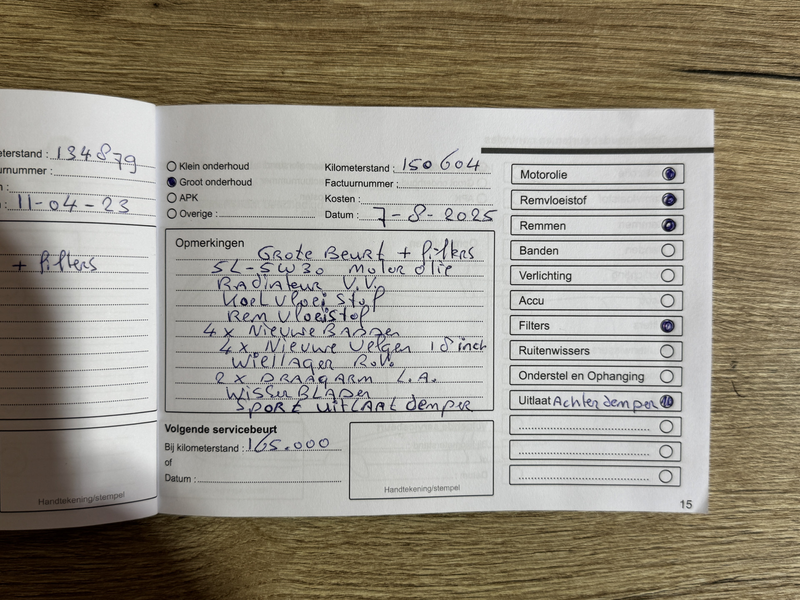 eterstand : 134879
urnummer :
: 11-04-23
+ filters
Handtekening/stempel
Klein onderhoud
Groot onderhoud
APK
Overige :
Kilometerstand : 150604
Factuurnummer :
Kosten :
Datum : 7-8-2025
Opmerkingen
Grote Beurt + filters
5L-5W30 motor olie
Radiateur V.V.
Koelvloeistof
Rem vloeistof
4x Nieuwe Banden
4x Nieuwe Velgen 18 inch
Wiellager R.V.
2x DRAAGARM L.A.
WisserBLADEN
SPORT uitLAAT demper
Volgende servicebeurt
Bij kilometerstand : 165.000
of
Datum :
Handtekening/stempel
Motorolie
Remvloeistof
Remmen
Banden
Verlichting
Accu
Filters
Ruitenwissers
Onderstel en Ophanging
Uitlaat Achter demper
15